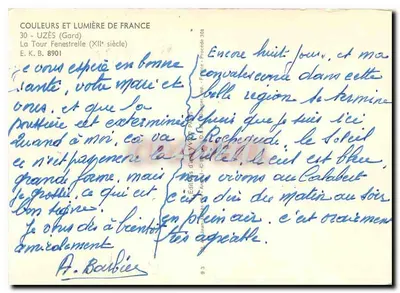 COULEURS ET LUMIÈRE DE FRANCE
30 - UZÈS (Gard)
La Tour Fenestrelle (XIIe siècle)
E. K. B. 8901
Je vous espère en bonne
santé, votre mari et
vous, et que la
poussière est exterminée
Quand à moi, ça va
ce n'est pas encore la
grande forme, mais
je grossis, ce qui est
bon signe.
Je vous dis à bientôt
amicalement
A. Barbier
Encore huit jours, et ma
convalescence dans cette
belle région se termine
depuis que je suis ici
Rochegude, le soleil
brille, le ciel est bleu,
nous vivons au
c'est à dire du matin au soir
en plein air, c'est vraiment
très agréable.